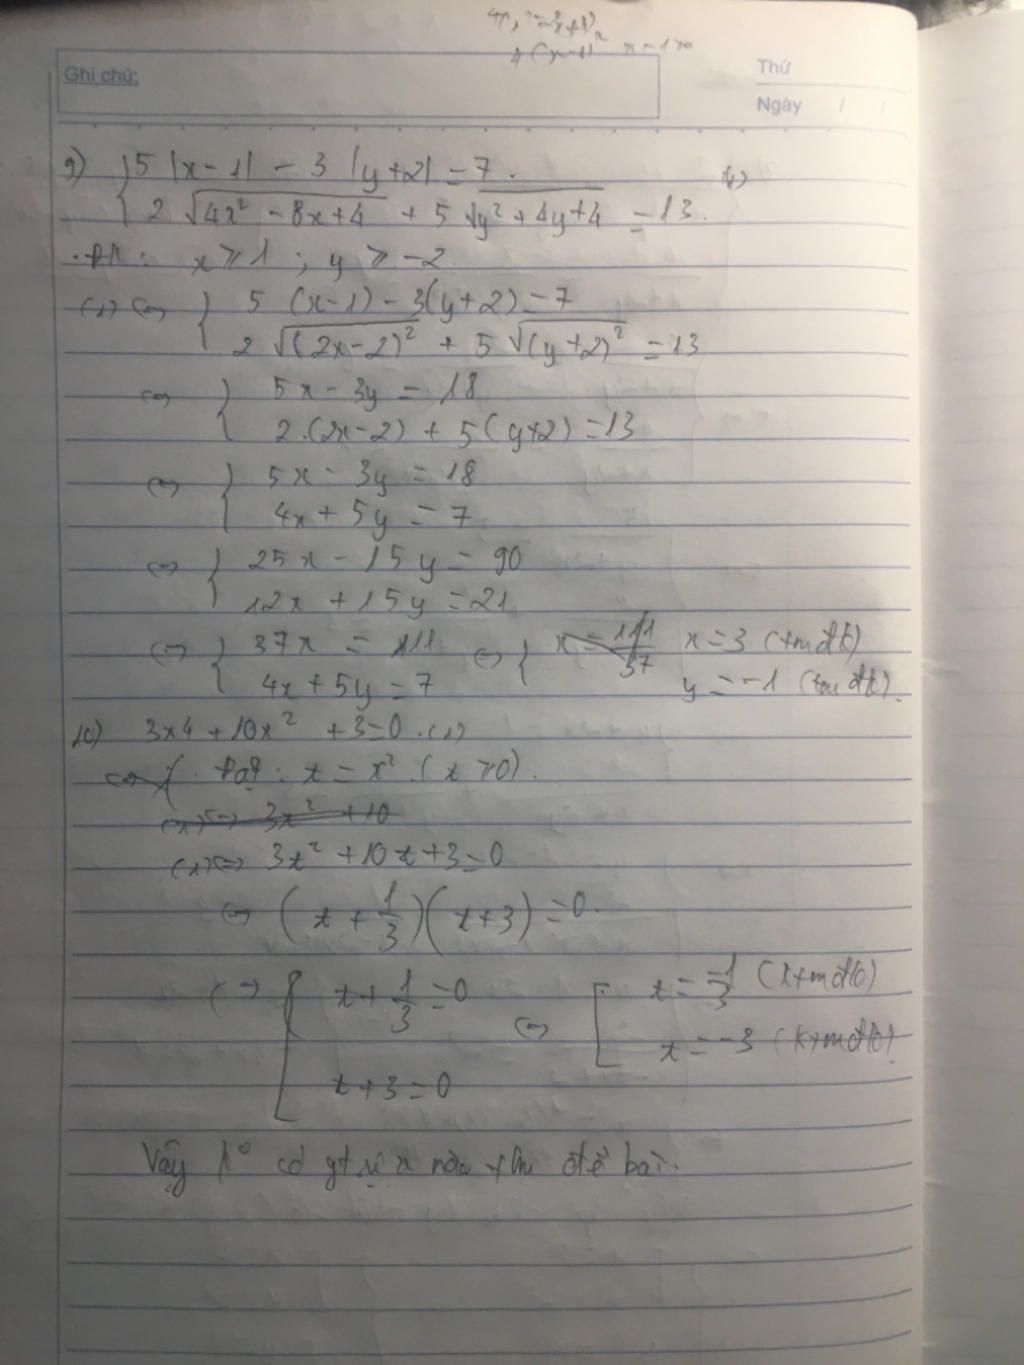 x - 1 > 0
Ghi chú:
Thứ
Ngày / /
9) { 5 |x - 1| - 3 |y + 2| = 7.
2 √(4x² - 8x + 4) + 5 √(y² + 4y + 4) = 13.
x ≥ 1 ; y ≥ -2
(1) <=> { 5 (x - 1) - 3(y + 2) = 7
2 √((2x - 2)²) + 5 √((y + 2)²) = 13
<=> { 5x - 3y = 18
2.(2x - 2) + 5(y + 2) = 13
<=> { 5x - 3y = 18
4x + 5y = 7
<=> { 25x - 15y = 90
12x + 15y = 21
<=> { 37x = 111 <=> { x = 111/37 x = 3 (tmđk)
4x + 5y = 7 y = -1 (tmđk).
10) 3x4 + 10x² + 3 = 0. (1)
Đặt : t = x² (t ≥ 0).
(1) <=> 3x² + 10
(1) <=> 3t² + 10t + 3 = 0
<=> (t + 1/3)(t + 3) = 0.
<=> [ t + 1/3 = 0 <=> [ t = -1/3 (ktmđk)
t + 3 = 0 t = -3 (ktmđk)
Vậy k° có gt x nào tm đề bài.